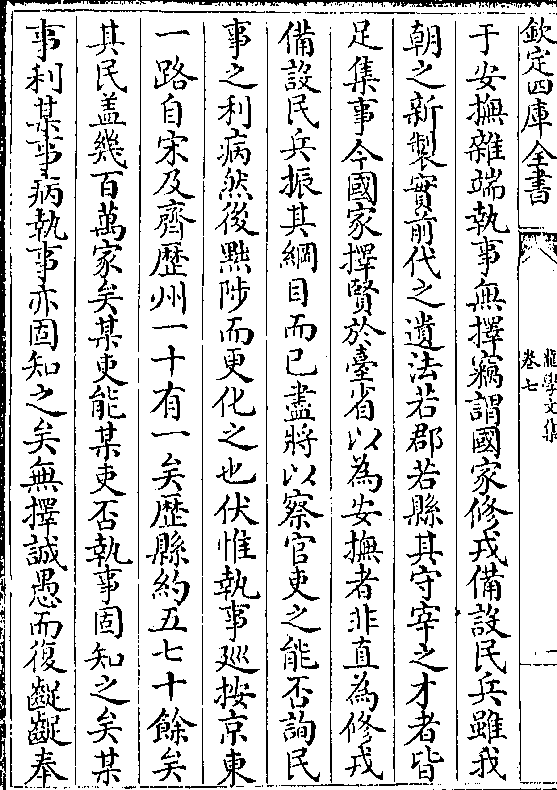 欽定四庫全書
龍學文集
卷七
一
于安撫雜端執事無擇竊謂國家修戎備設民兵雖我
朝之新製實前代之遺法若郡若縣其守宰之才者皆
足集事今國家擇賢於臺省以為安撫者非直為修戎
備設民兵振其綱目而已盡將以察官吏之能否詢民
事之利病然後黜陟而更化之也伏惟執事廵按京東
一路自宋及齊歷州一十有一矣歷縣約五七十餘矣
其民盖幾百萬家矣某吏能某吏否執事固知之矣某
事利某事病執事亦固知之矣無擇誠愚而復齪齪奉